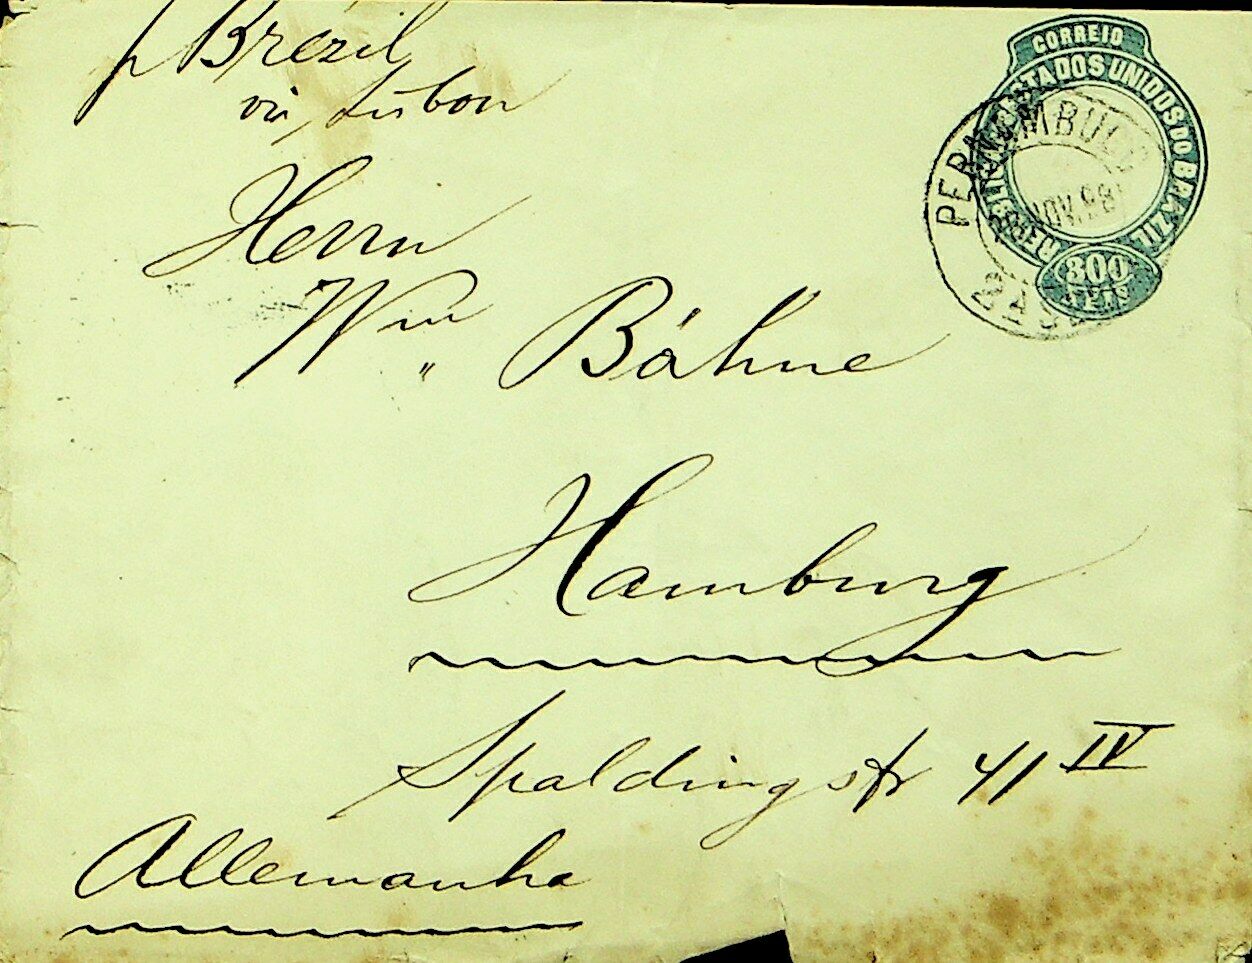 p Brézil
via Lisbon
CORREIO
REPUBLICA DOS ESTADOS UNIDOS DO BRAZIL
300
REIS
PERNAMBUCO
NOV. 98
2ª
Herrn
Wm Bähne
Hamburg
Spaldingstr 41 IV
Allemanha